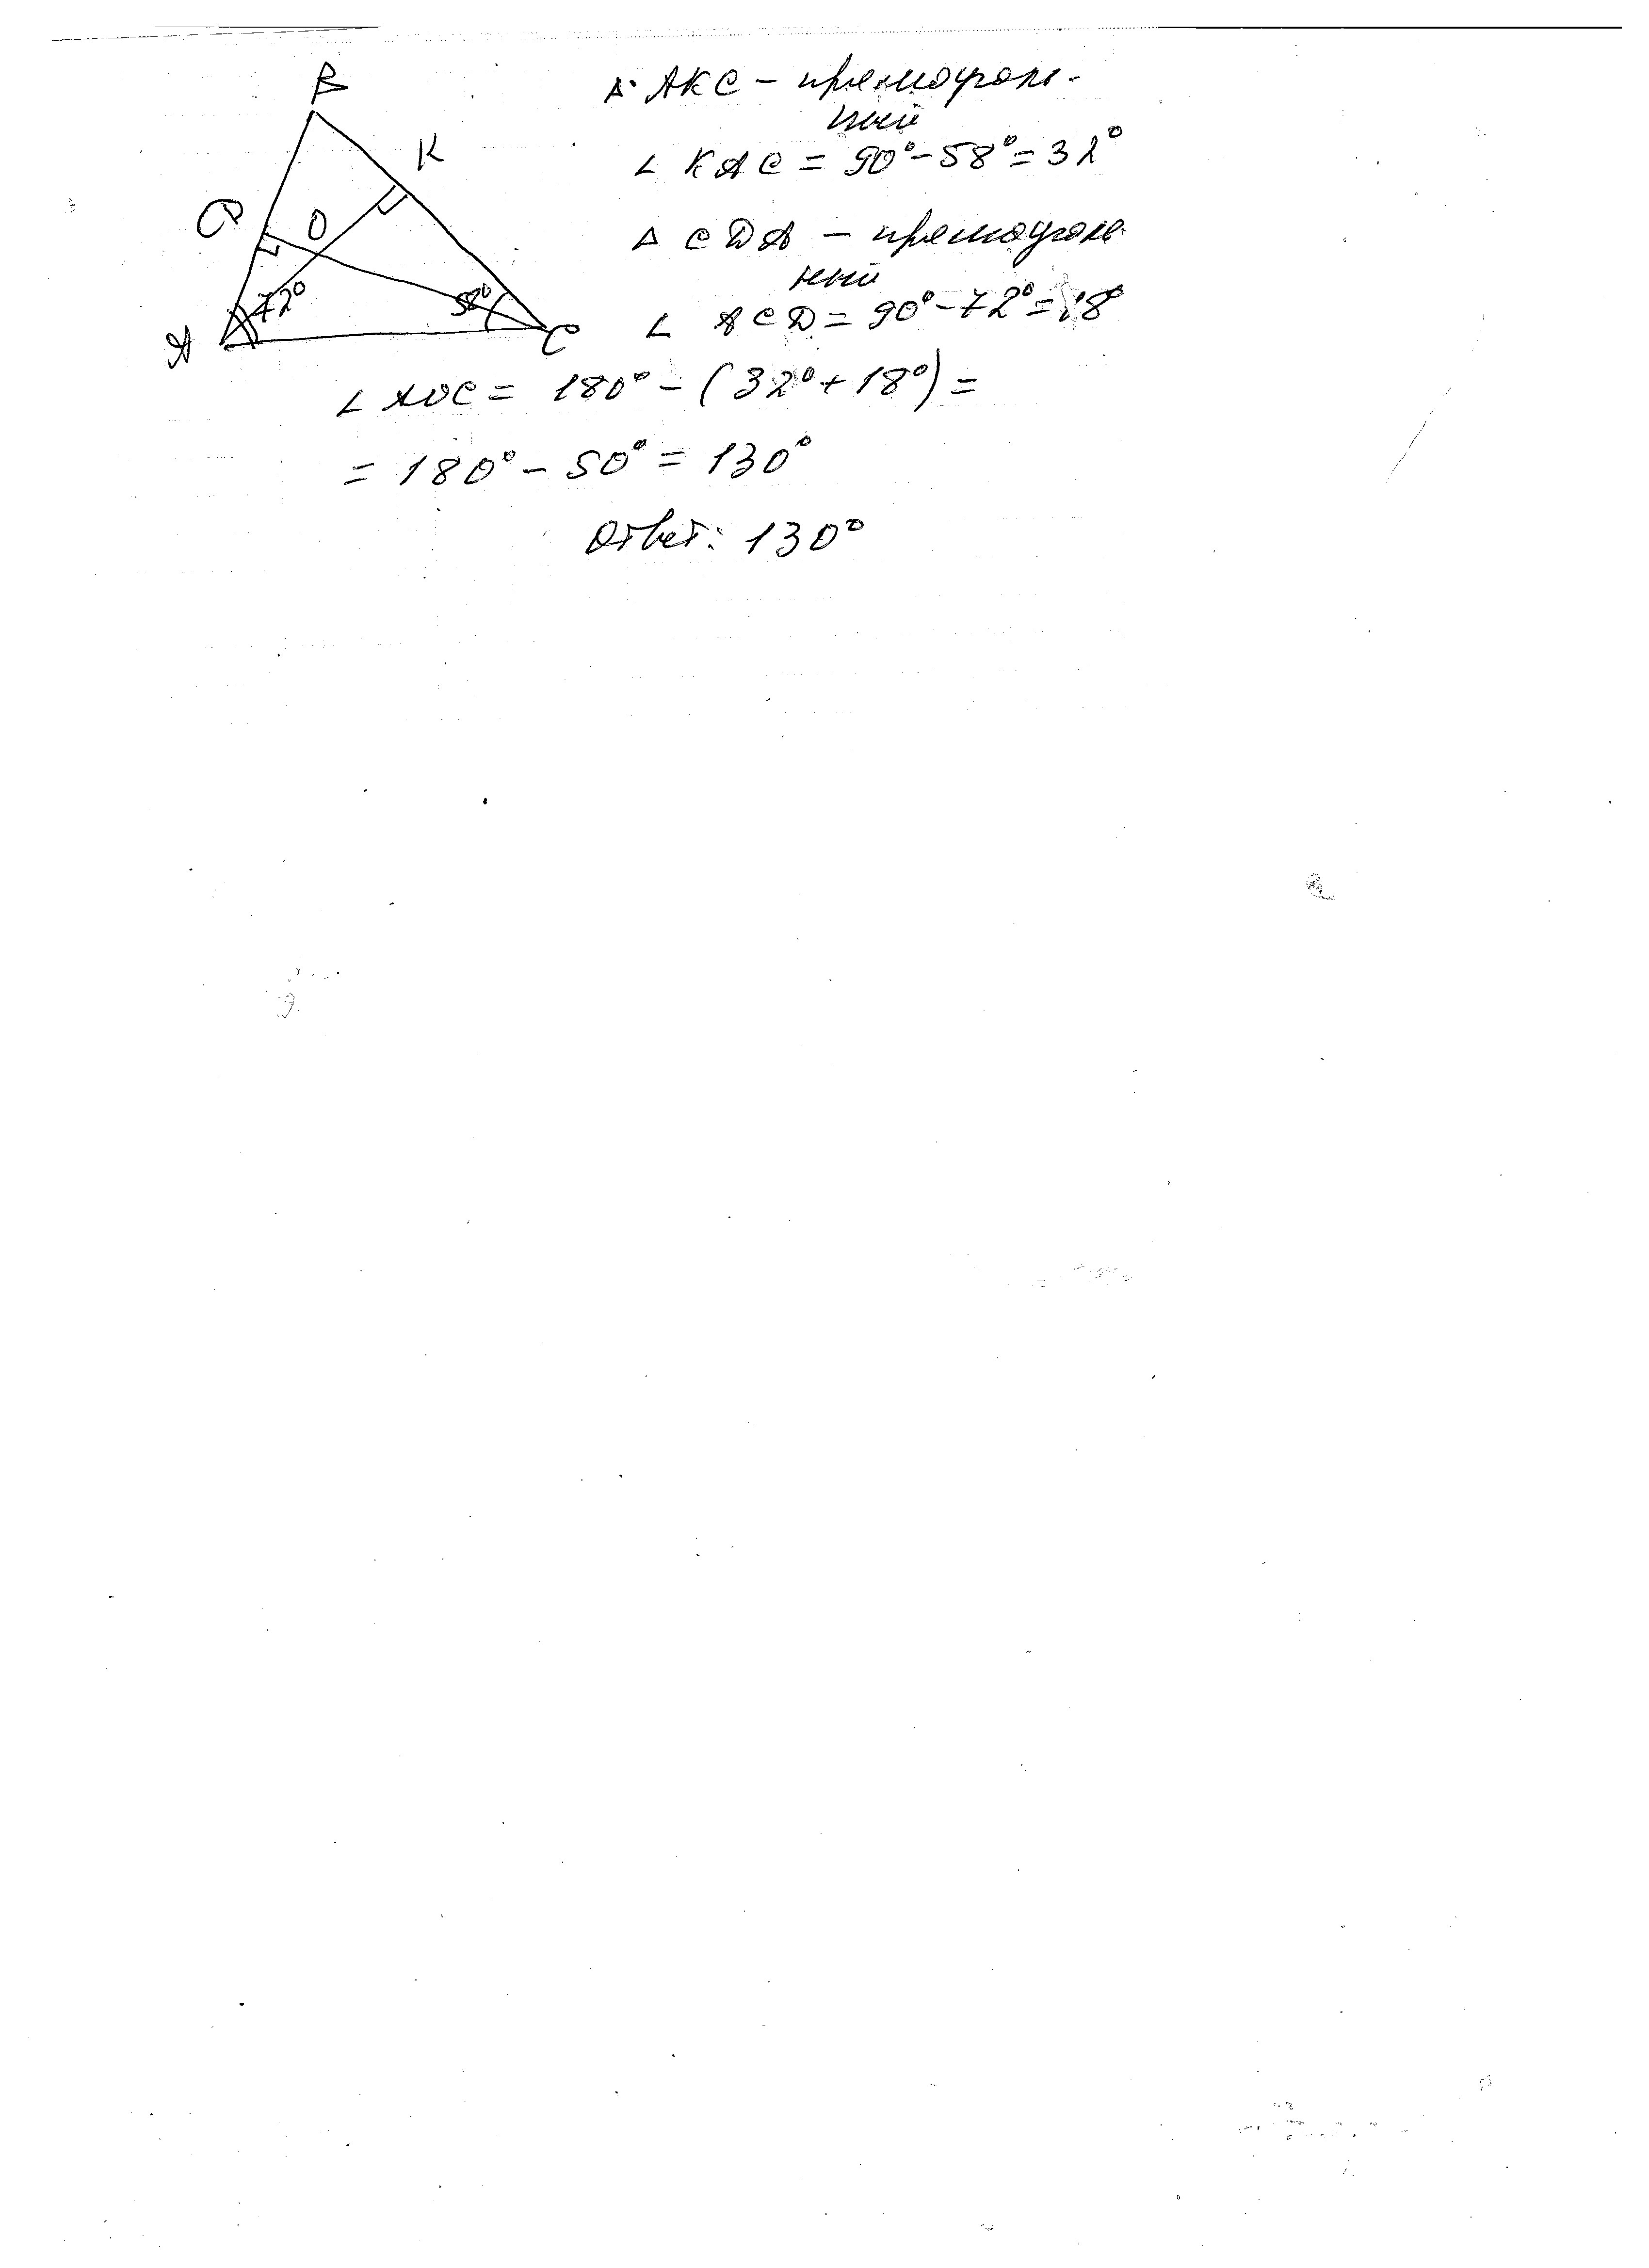 B
K
D
O
72°
58°
A
C
Δ AKC – прямоуголь-
ный
∠ KAC = 90° – 58° = 32°
Δ CDA – прямоуголь-
ный
∠ ACD = 90° – 72° = 18°
∠ AOC = 180° – (32° + 18°) =
= 180° – 50° = 130°
Ответ: 130°